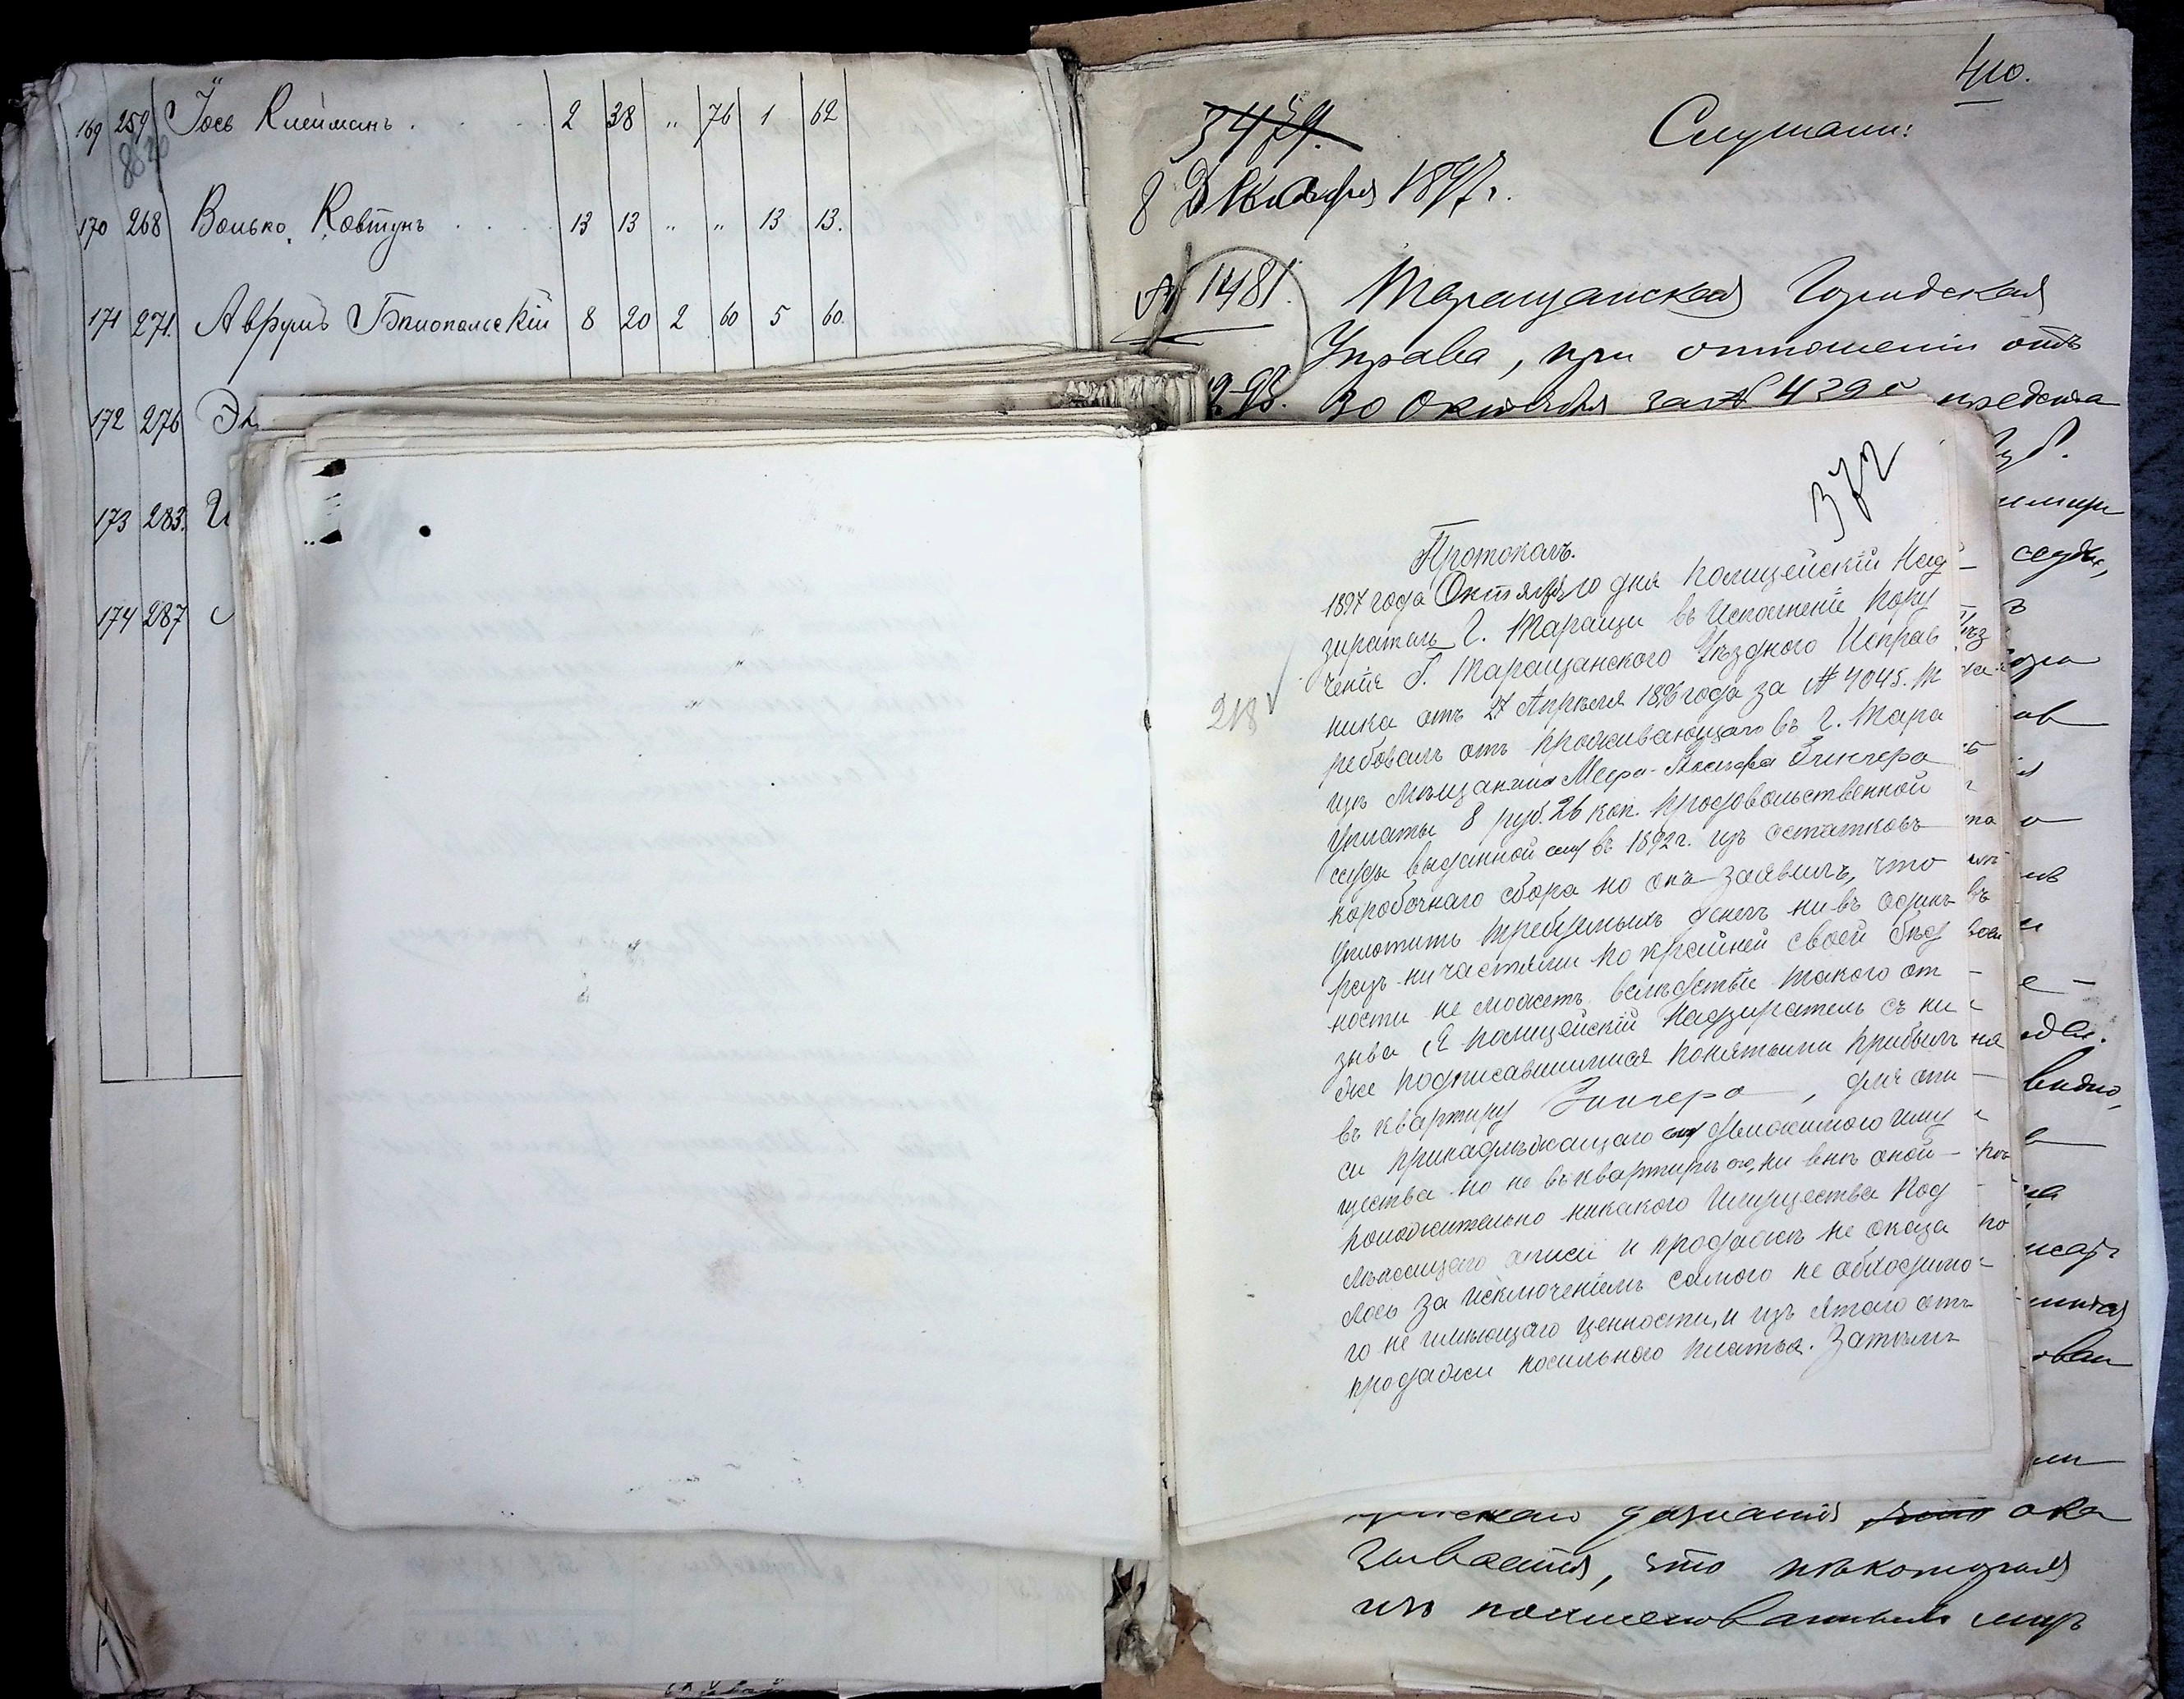 169 259 Іось Клейманъ . . . 2 38 " 76 1 62
170 268 Волько Ковтунъ . . . . 13 13 " " 13 13.
171 271. Аврумъ Бѣлопольскій 8 20 2 60 5 60.
172 276
173 283.
174 287
410.
Слушали:
3479.
8 Декабря 1897 г.
№ 1481.
Таращанская Городская
Управа, при отношеніи отъ
30 Октября за № 4290 предста
372
Протоколъ.
1897 года Октября 10 дня Полицейскій Над
зиратель Г. Таращи въ Исполненіе Пору
ченія Г. Таращанского Уѣздного Исправ
ника отъ 27 Апрѣля 1896 года за № 4045. т
ребовалъ отъ проживающаго въ г. Тара
щѣ Мѣщанина Меера-Іосифа Зингера
уплаты 8 руб. 26 коп. продовольственной
218
ссуды выданной ему въ 1892 г. изъ остатковъ
коробочнаго сбора но онъ заявилъ, что
уплотить требуемыхъ денегъ ни въ одинъ
разъ ни частями по крайней своей бѣд
ности не можетъ, вслѣдствіе такого от
зыва Я Полицейскій Надзиратель съ ни
же подписавшимися понятыми прибылъ
въ квартиру Зингера, для опи
си принадлѣжащаго ему движимого иму
щества но не въ квартирѣ его, ни внѣ оной
положительно никакого Имущества под
лѣжащаго описи и продажѣ не оказа
лось за исключеніемъ самого не обходимо
го не имѣющаго ценности, и изъ ятаго отъ
продажи носильного платья. Затѣмъ
дознанія что ока
зывается, что нѣкоторыя
изъ поименованныхъ лицъ